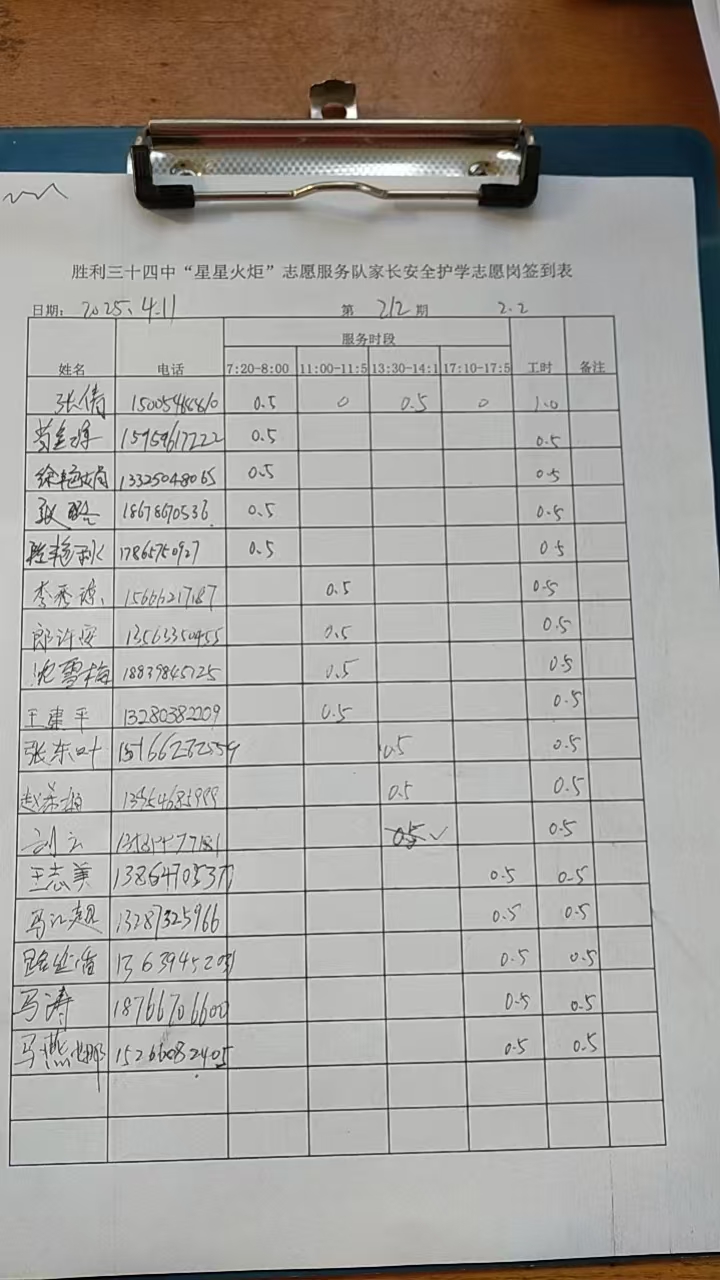 胜利三十四中“星星火炬”志愿服务队家长安全护学志愿岗签到表
日期: 2025.4.11 第 212 期 2.2
服务时段
姓名 电话 7:20-8:00 11:00-11:5 13:30-14:1 17:10-17:5 工时 备注
张倩 0.5 0 0.5 0 1.0
15959617222 0.5 0.5
徐艳娟 13325048065 0.5 0.5
18678670536 0.5 0.5
17865750927 0.5 0.5
李秀 15666217187 0.5 0.5
郎许 13563350455 0.5 0.5
沈雪梅 18839845725 0.5 0.5
王建平 13280382209 0.5 0.5
张东叶 15166232559 0.5 0.5
0.5 0.5
刘云 0.5 ✓ 0.5
王志美 13864705377 0.5 0.5
马江超 13287325966 0.5 0.5
0.5 0.5
马涛 18766706600 0.5 0.5
马燕娜 15266082405 0.5 0.5